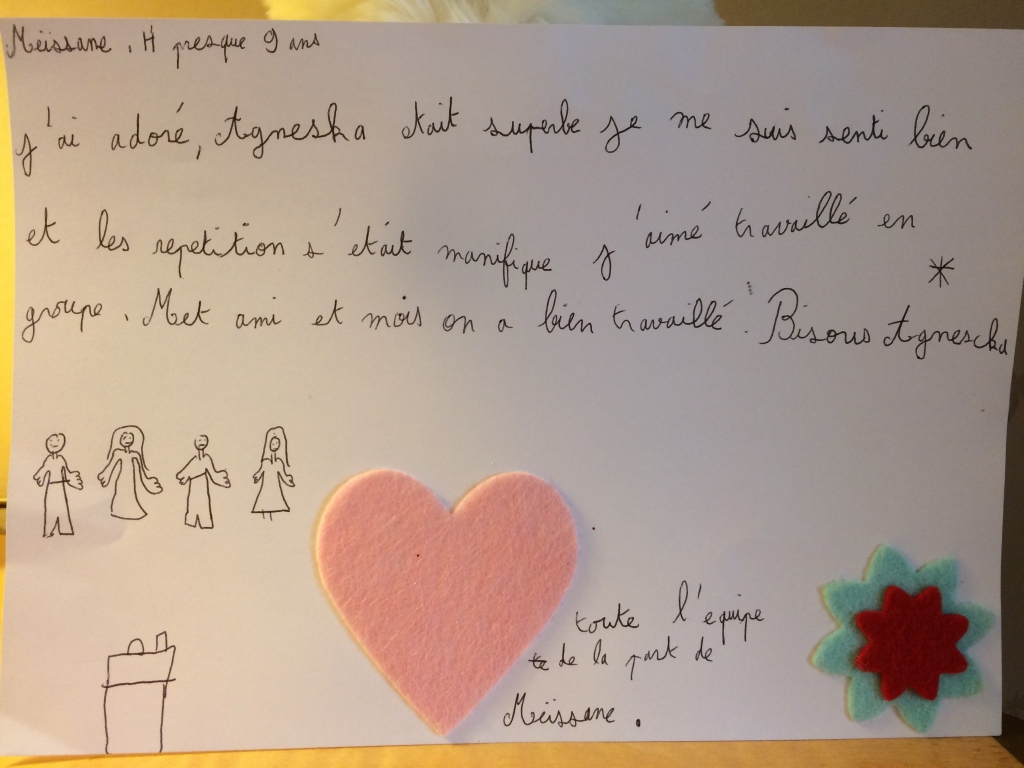 Méissane. H presque 9 ans
j'ai adoré, Agneska etait superbe je me suis senti bien
et les repetition s'etait manifique j'aimé travaillé en
groupe. Met ami et mois on a bien travaillé. Bisous Agnescka
toute l'equipe
te de la part de
Méissane.